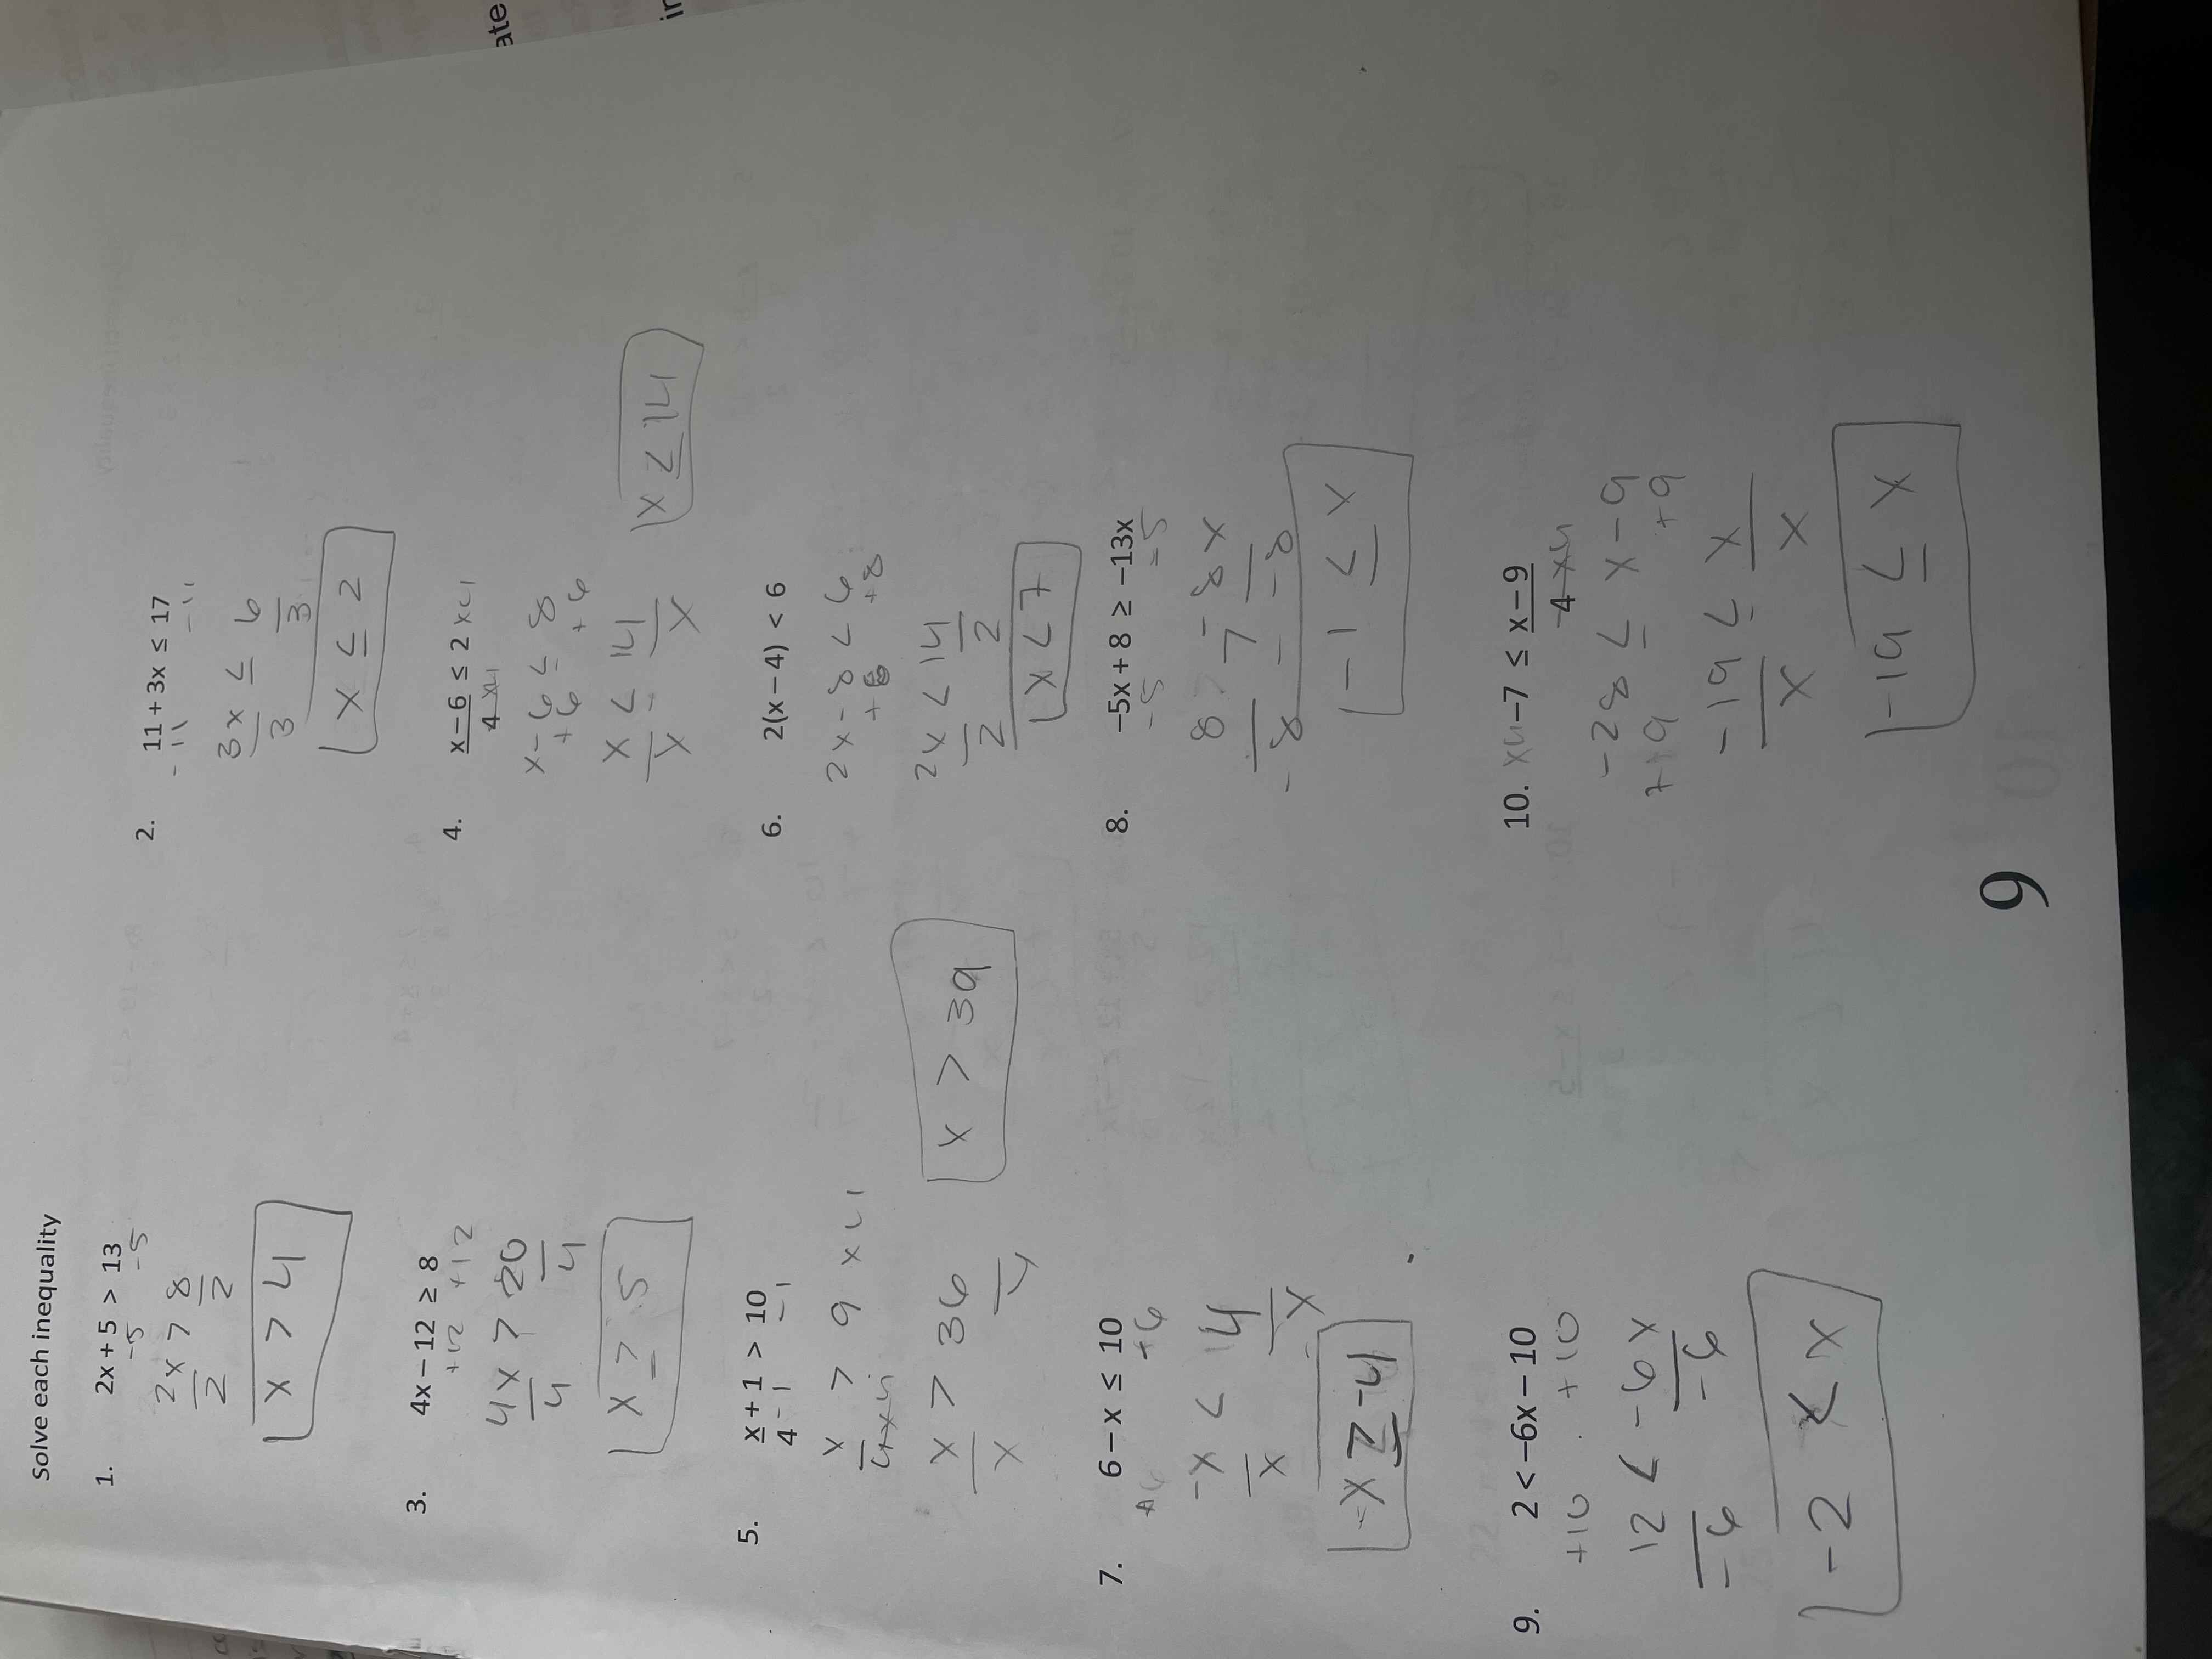 Solve each inequality
1. 2x + 5 > 13
-5 -5
2x > 8
2 2
x > 4
2. 11 + 3x ≤ 17
-11 -11
3x ≤ 6
3 3
x ≤ 2
3. 4x – 12 ≥ 8
+12 +12
4x > 20
4 4
x ≥ 5
4. x – 6 ≤ 2 x4
4 x4
x - 6 ≤ 8
+6 +6
x ≤ 14
x x
x ≥ 14
5. x + 1 > 10
4 -1 -1
x > 9 x4
4x4
x > 36
x
x > 39
6. 2(x – 4) < 6
2x - 8 < 6
+8 +8
2x < 14
2 2
x < 7
7. 6 – x ≤ 10
+6 +6
-x < 14
x x
-x ≥ -4
8. -5x + 8 ≥ -13x
-5 -5
8 > -8x
-8 -8
-1 ≤ x
9. 2 < -6x – 10
+10 +10
12 < -6x
-6 -6
-2 < x
10. x4 -7 ≤ x – 9
4 x4
-28 ≤ x - 9
+9 +9
-19 ≤ x
x x
-19 ≤ x
9
ate
in